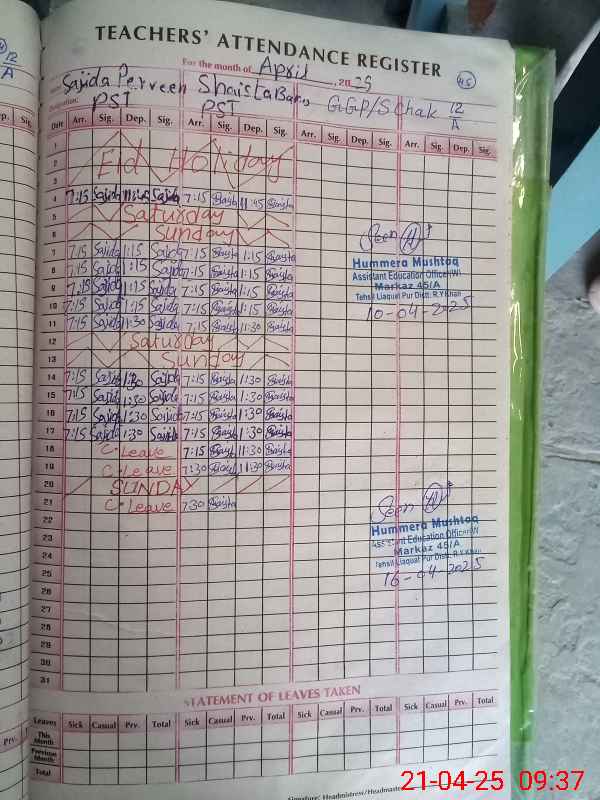 TEACHERS' ATTENDANCE REGISTER
For the month of April, 2025
45
Sajida Perveen Shaista Bano GGP/S Chak 12/A
Designation: PST PST
Date Arr. Sig. Dep. Sig. Arr. Sig. Dep. Sig. Arr. Sig. Dep. Sig. Arr. Sig. Dep. Sig.
1
2 Eid Holiday
3
4 7:15 Sajida 11:45 Sajida 7:15 Shaista 11:45 Shaista
5 Saturday
6 Sunday
7 7:15 Sajida 1:15 Sajida 7:15 Shaista 1:15 Shaista
8 7:15 Sajida 1:15 Sajida 7:15 Shaista 1:15 Shaista
9 7:15 Sajida 1:15 Sajida 7:15 Shaista 1:15 Shaista
10 7:15 Sajida 1:15 Sajida 7:15 Shaista 1:15 Shaista
11 7:15 Sajida 11:30 Sajida 7:15 Shaista 11:30 Shaista
12 Saturday
13 Sunday
14 7:15 Sajida 1:30 Sajida 7:15 Shaista 1:30 Shaista
15 7:15 Sajida 1:30 Sajida 7:15 Shaista 1:30 Shaista
16 7:15 Sajida 1:30 Sajida 7:15 Shaista 1:30 Shaista
17 7:15 Sajida 1:30 Sajida 7:15 Shaista 1:30 Shaista
18 C. Leave 7:15 Shaista 11:30 Shaista
19 C. Leave 7:30 Shaista 11:30 Shaista
20 SUNDAY
21 C. Leave 7:30 Shaista
22
23
24
25
26
27
28
29
30
31
Seen
Hummera Mushtaq
Assistant Education Officer (W)
Markaz 45/A
Tehsil Liaquat Pur Distt. R.Y.Khan
10-04-2025
Seen
Hummera Mushtaq
Assistant Education Officer (W)
Markaz 45/A
Tehsil Liaquat Pur Distt. R.Y.Khan
16-04-2025
STATEMENT OF LEAVES TAKEN
Leaves Sick Casual Prv. Total Sick Casual Prv. Total Sick Casual Prv. Total Sick Casual Prv. Total
This Month
Previous Month
Total
Signature: Headmistress/Headmaster
12/A
Dep. Sig.
Prv. Total
21-04-25 09:37